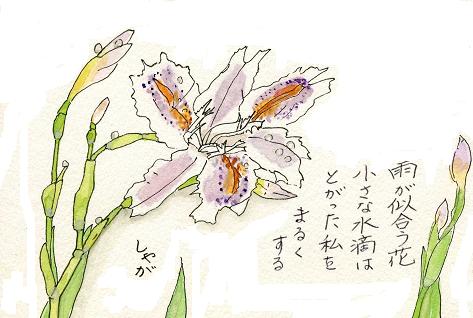 雨が似合う花
小さな水滴は
とがった私を
まるく
する
しゃが